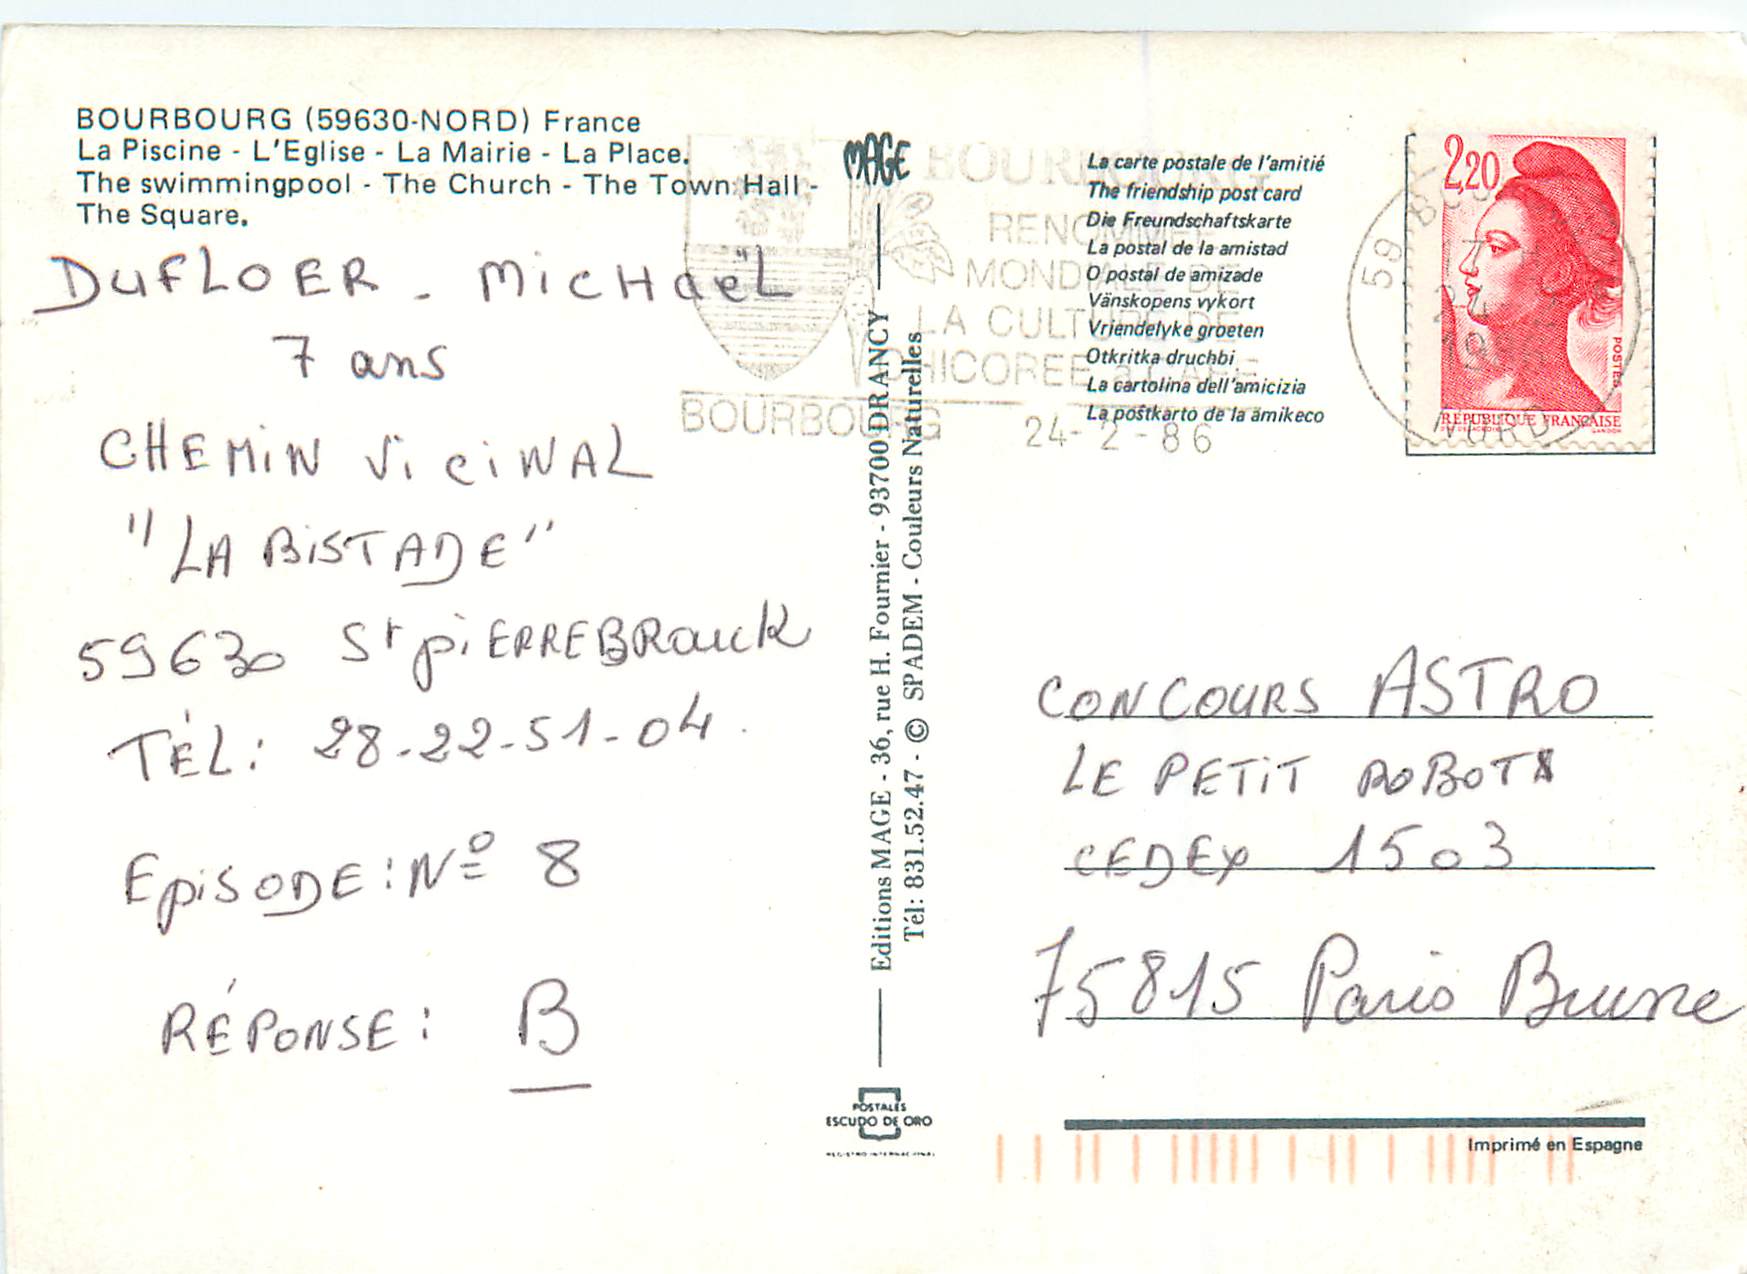 BOURBOURG (59630-NORD) France
La Piscine - L'Eglise - La Mairie - La Place.
The swimmingpool - The Church - The Town Hall -
The Square.
DUFLOER - MICHaëL
7 ans
CHEMIN ViCiNAL
"LA BISTADE"
59630 St piERREBRouck
TÉL: 28-22-51-04.
EpiSODE: Nº 8
RÉPONSE: B
MAGE
Editions MAGE - 36, rue H. Fournier - 93700 DRANCY
Tél: 831.52.47 - © SPADEM - Couleurs Naturelles
POSTALES
ESCUDO DE ORO
REGISTRO INTERNACIONAL
BOURBOURG
RENOMMÉE
MONDIALE DE
LA CULTURE DE
CHICOREE à CAFE
BOURBOURG
24-2-86
La carte postale de l'amitié
The friendship post card
Die Freundschaftskarte
La postal de la amistad
O postal de amizade
Vänskopens vykort
Vriendelyke groeten
Otkritka druchbi
La cartolina dell'amicizia
La poŝtkarto de la amikeco
2,20
POSTES
REPUBLIQUE FRANÇAISE
59 BOU
17
24
19
NORD
CONCOURS ASTRO
LE PETiT ROBOT
CEDEX 1503
75815 Paris Brune
Imprimé en Espagne